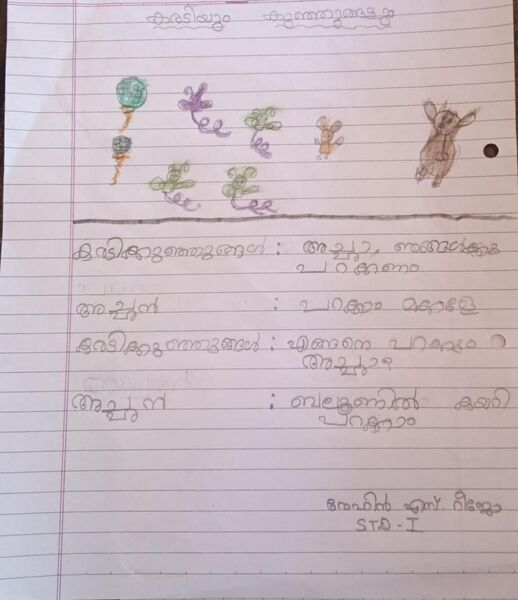 കരടിയും കുഞ്ഞുങ്ങളും
കരടിക്കുഞ്ഞുങ്ങൾ : അച്ഛാ, ഞങ്ങൾക്കു
പറക്കണം
അച്ഛൻ : പറക്കാം മക്കളേ
കരടിക്കുഞ്ഞുങ്ങൾ : എങ്ങനെ പറക്കും
അച്ഛാ?
അച്ഛൻ : ബലൂണിൽ കയറി
പറക്കാം
എസ്. റീജോ
STD - I